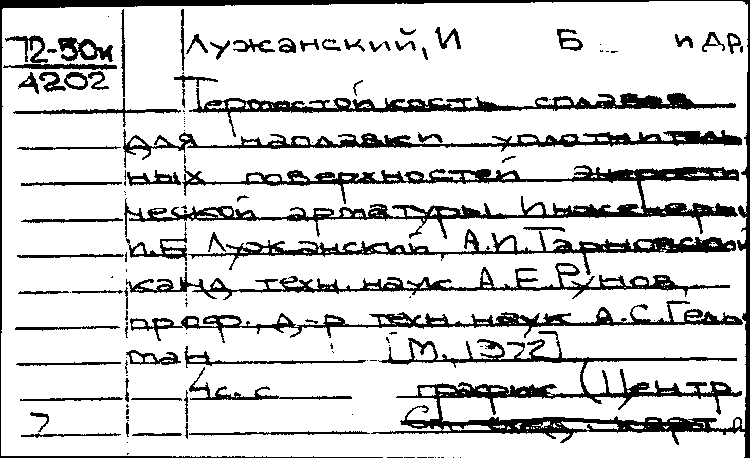 72-50к
4202
Лужанский, И Б и др.
Термостойкость сплавов
для наплавки уплотнитель
ных поверхностей энергети-
ческой арматуры. Инженеры
И.Б Лужанский, А.И. Тарновский
канд техн. наук А.Е. Рунов,
проф., д-р техн. наук А.С. Гель
ман [М., 1972]
4с. с график (Центр
См. след. карт.
7